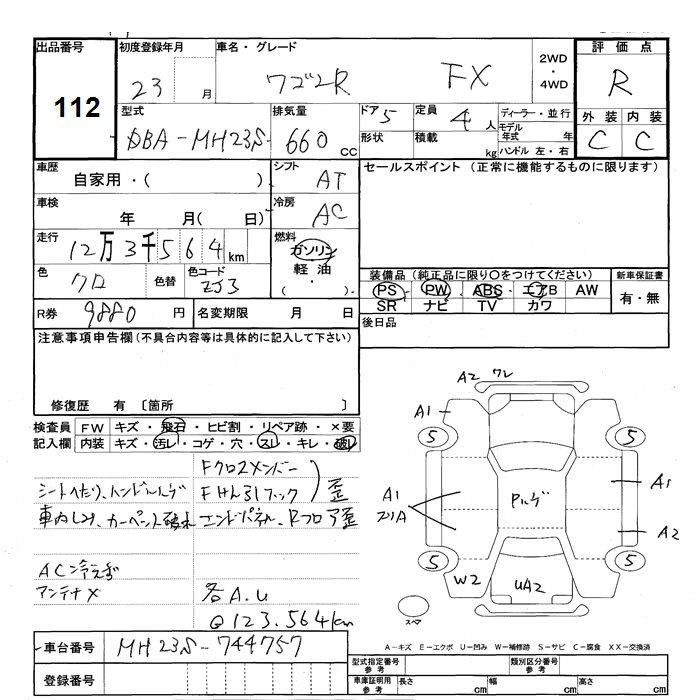 出品番号 初度登録年月 車名・グレード 2WD ・ 4WD 評価点
112 23 月 ワゴンR FX R
型式 排気量 ドア 5 定員 4人 ディーラー・並行 外装 内装
DBA-MH23S 660 cc 形状 積載 kg モデル年式 年 ハンドル 左・右 C C
車歴 シフト セールスポイント (正常に機能するものに限ります)
自家用・( ) AT
車検 冷房
年 月( 日) AC
走行 燃料
12万3千564km ガソリン
色 色替 色コード 軽油 装備品 (純正品に限り○をつけてください) 新車保証書
クロ ZJ3 ( ・ ) PS PW ABS エアB AW 有・無
R券 9880 円 名変期限 月 日 SR ナビ TV カワ
注意事項申告欄 (不具合内容等は具体的に記入して下さい) 後日品
修復歴 有 〔箇所 〕
検査員 FW キズ・飛石・ヒビ割・リペア跡・×要
記入欄 内装 キズ・汚レ・コゲ・穴・スレ・キレ・破レ
Fクロスメンバー
シートへたり、ハンドルハゲ Fけん引フック 歪
車内しみ、カーペット破れ エンドパネル、Rフロア歪
AC冷えず
アンテナX 各A.U
@123.564km
A2 ワレ
A1
5 5
A1
A1 Pハゲ
A2
5 5
W2 UA2
スペア
A-キズ E-エクボ U-凹み W-補修跡 S-サビ C-腐食 XX-交換済
車台番号 MH23S-744757
型式指定番号 参考 類別区分番号 参考
登録番号 車庫証明用 参考 長さ cm 幅 cm 高さ cm